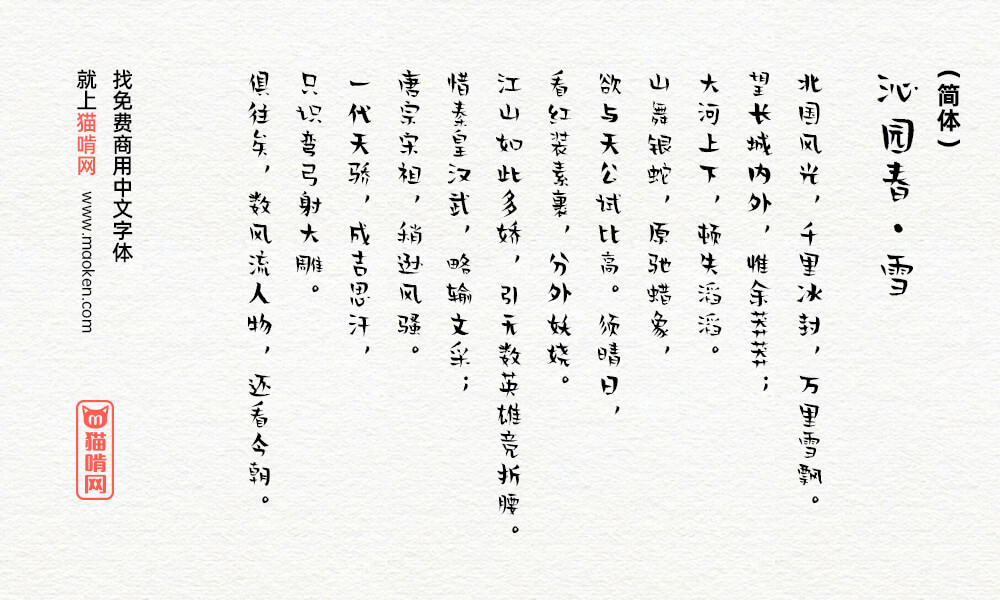 （简体）
沁园春·雪
北国风光，千里冰封，万里雪飘。
望长城内外，惟余莽莽；
大河上下，顿失滔滔。
山舞银蛇，原驰蜡象，
欲与天公试比高。须晴日，
看红装素裹，分外妖娆。
江山如此多娇，引无数英雄竞折腰。
惜秦皇汉武，略输文采；
唐宗宋祖，稍逊风骚。
一代天骄，成吉思汗，
只识弯弓射大雕。
俱往矣，数风流人物，还看今朝。
找免费商用中文字体
就上猫啃网 www.maoken.com
猫啃网